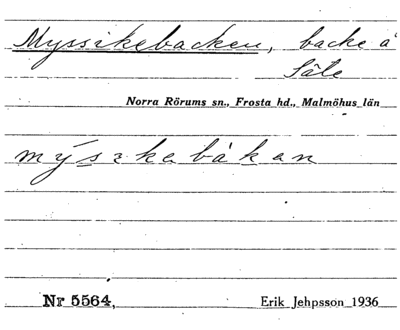 Myssikebacken, backe å
Säte
Norra Rörums sn., Frosta hd., Malmöhus län
mýsikebàkan
Nr 5564,
Erik Jehpsson 1936